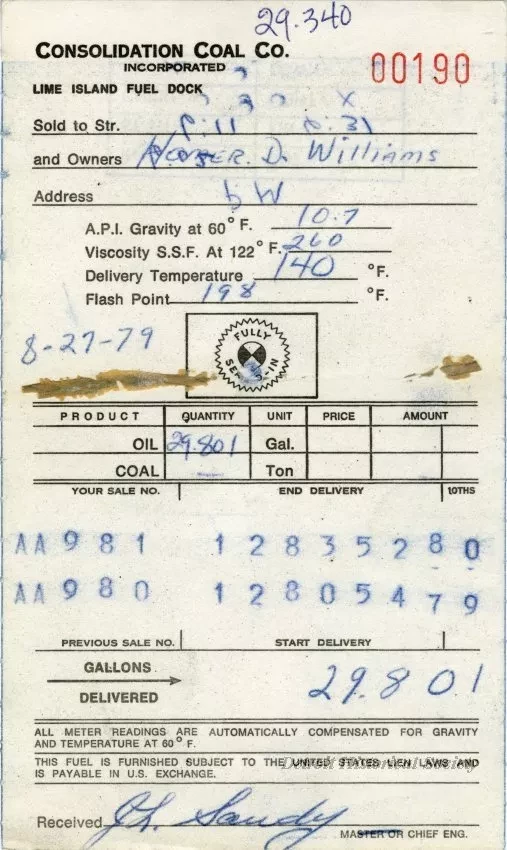 29.340
CONSOLIDATION COAL CO.
INCORPORATED
00190
LIME ISLAND FUEL DOCK
Sold to Str.
and Owners HOMER. D. WILLIAMS
Address
A.P.I. Gravity at 60° F. 10.7
Viscosity S.S.F. At 122° F. 260
Delivery Temperature 140 °F.
Flash Point 198 °F.
8-27-79
FULLY
PRODUCT QUANTITY UNIT PRICE AMOUNT
OIL 29.801 Gal.
COAL — Ton
YOUR SALE NO. END DELIVERY 10THS
AA981 12835280
AA980 12805479
PREVIOUS SALE NO. START DELIVERY
GALLONS
DELIVERED
29.801
ALL METER READINGS ARE AUTOMATICALLY COMPENSATED FOR GRAVITY
AND TEMPERATURE AT 60° F.
THIS FUEL IS FURNISHED SUBJECT TO THE UNITED STATES LIEN LAWS AND
Detroit Historical Society
IS PAYABLE IN U.S. EXCHANGE.
Received
MASTER OR CHIEF ENG.